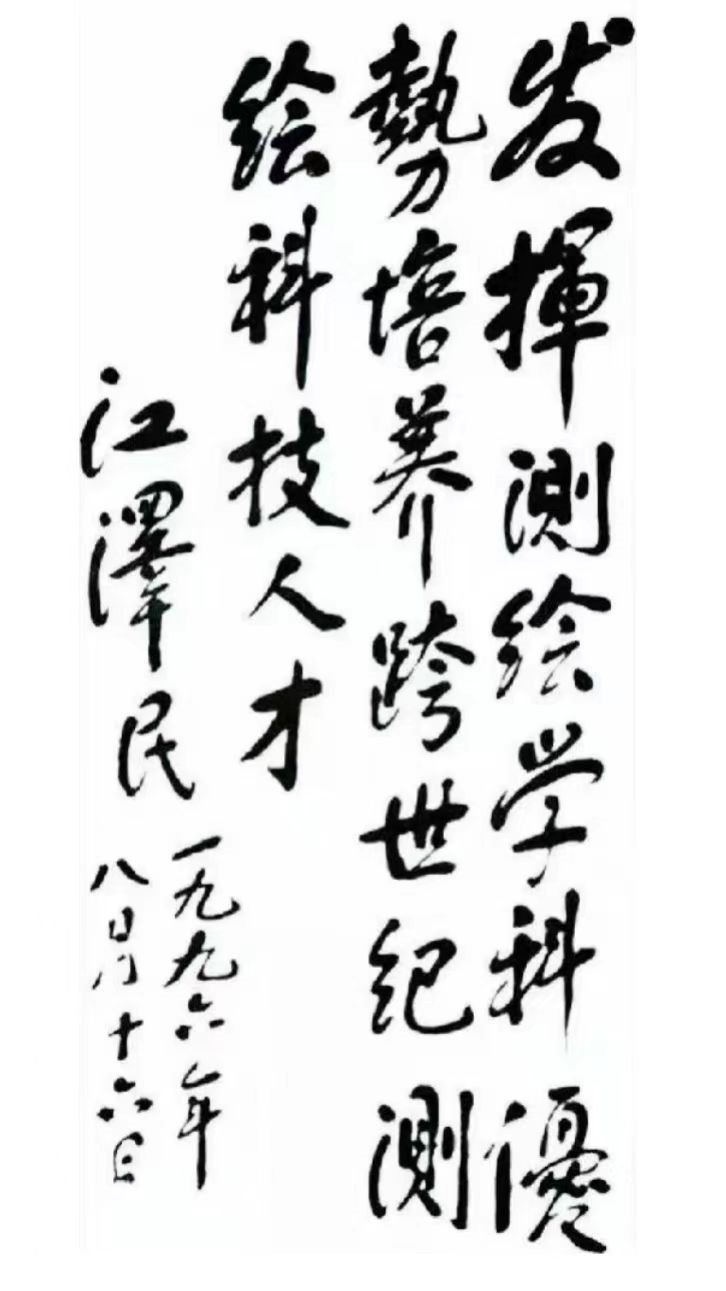 发揮测绘学科優
勢培养跨世纪测
绘科技人才
江澤民
一九九六年
八月十六日